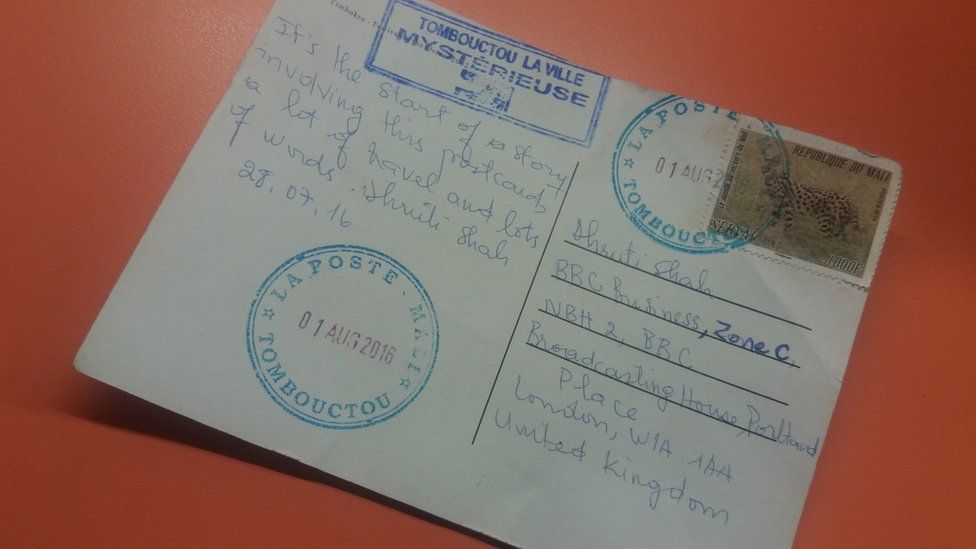 Timbuktu -
TOMBOUCTOU LA VILLE
MYSTÉRIEUSE
It's the start of a story
involving this postcard,
a lot of travel and lots
of words. Dhruti Shah
28.07.16
LA POSTE - MALI
01 AUG 2016
TOMBOUCTOU
LA POSTE - MA
01 AUG
TOMBOUCTOU
REPUBLIQUE DU MALI
SERVAL
1000F
Dhruti Shah
BBC Business, Zone C,
NBH 2, BBC
Broadcasting House, Portland
Place
London, W1A 1AA
United Kingdom